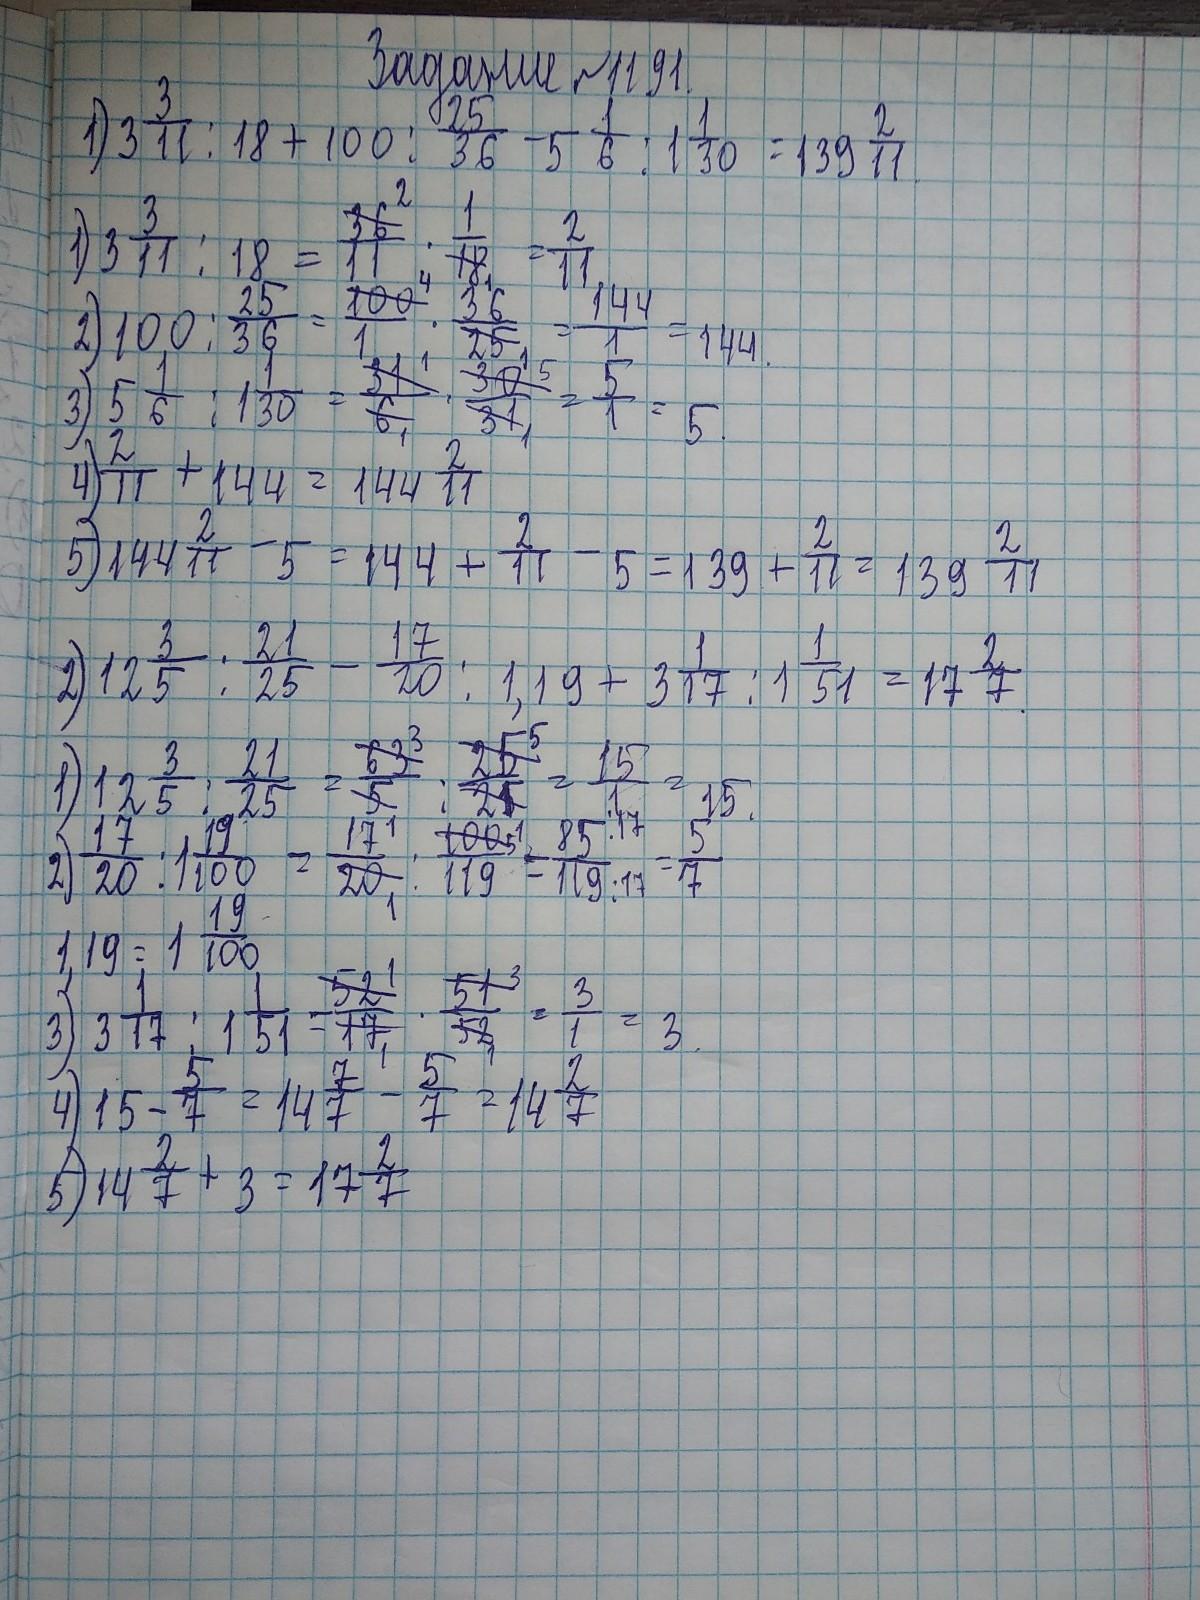 Задание №1191.
1) 3 3/11 : 18 + 100 : 25/36 - 5 1/6 : 1 1/30 = 139 2/11.
1) 3 3/11 : 18 = 36²/11 · 1/18₁ = 2/11
2) 100 : 25/36 = 100⁴/1 · 36/25₁ = 144/1 = 144.
3) 5 1/6 : 1 1/30 = 31¹/6₁ · 30⁵/31₁ = 5/1 = 5.
4) 2/11 + 144 = 144 2/11
5) 144 2/11 - 5 = 144 + 2/11 - 5 = 139 + 2/11 = 139 2/11
2) 12 3/5 : 21/25 - 17/20 : 1,19 + 3 1/17 : 1 1/51 = 17 2/7.
1) 12 3/5 : 21/25 = 63³/5 : 25⁵/21 = 15/1 = 15.
2) 17/20 : 1 19/100 = 17/20₁ : 100⁵/119 = 85:17/119:17 = 5/7
1,19 = 1 19/100
3) 3 1/17 : 1 1/51 = 52¹/17₁ · 51³/52₁ = 3/1 = 3.
4) 15 - 5/7 = 14 7/7 - 5/7 = 14 2/7
5) 14 2/7 + 3 = 17 2/7